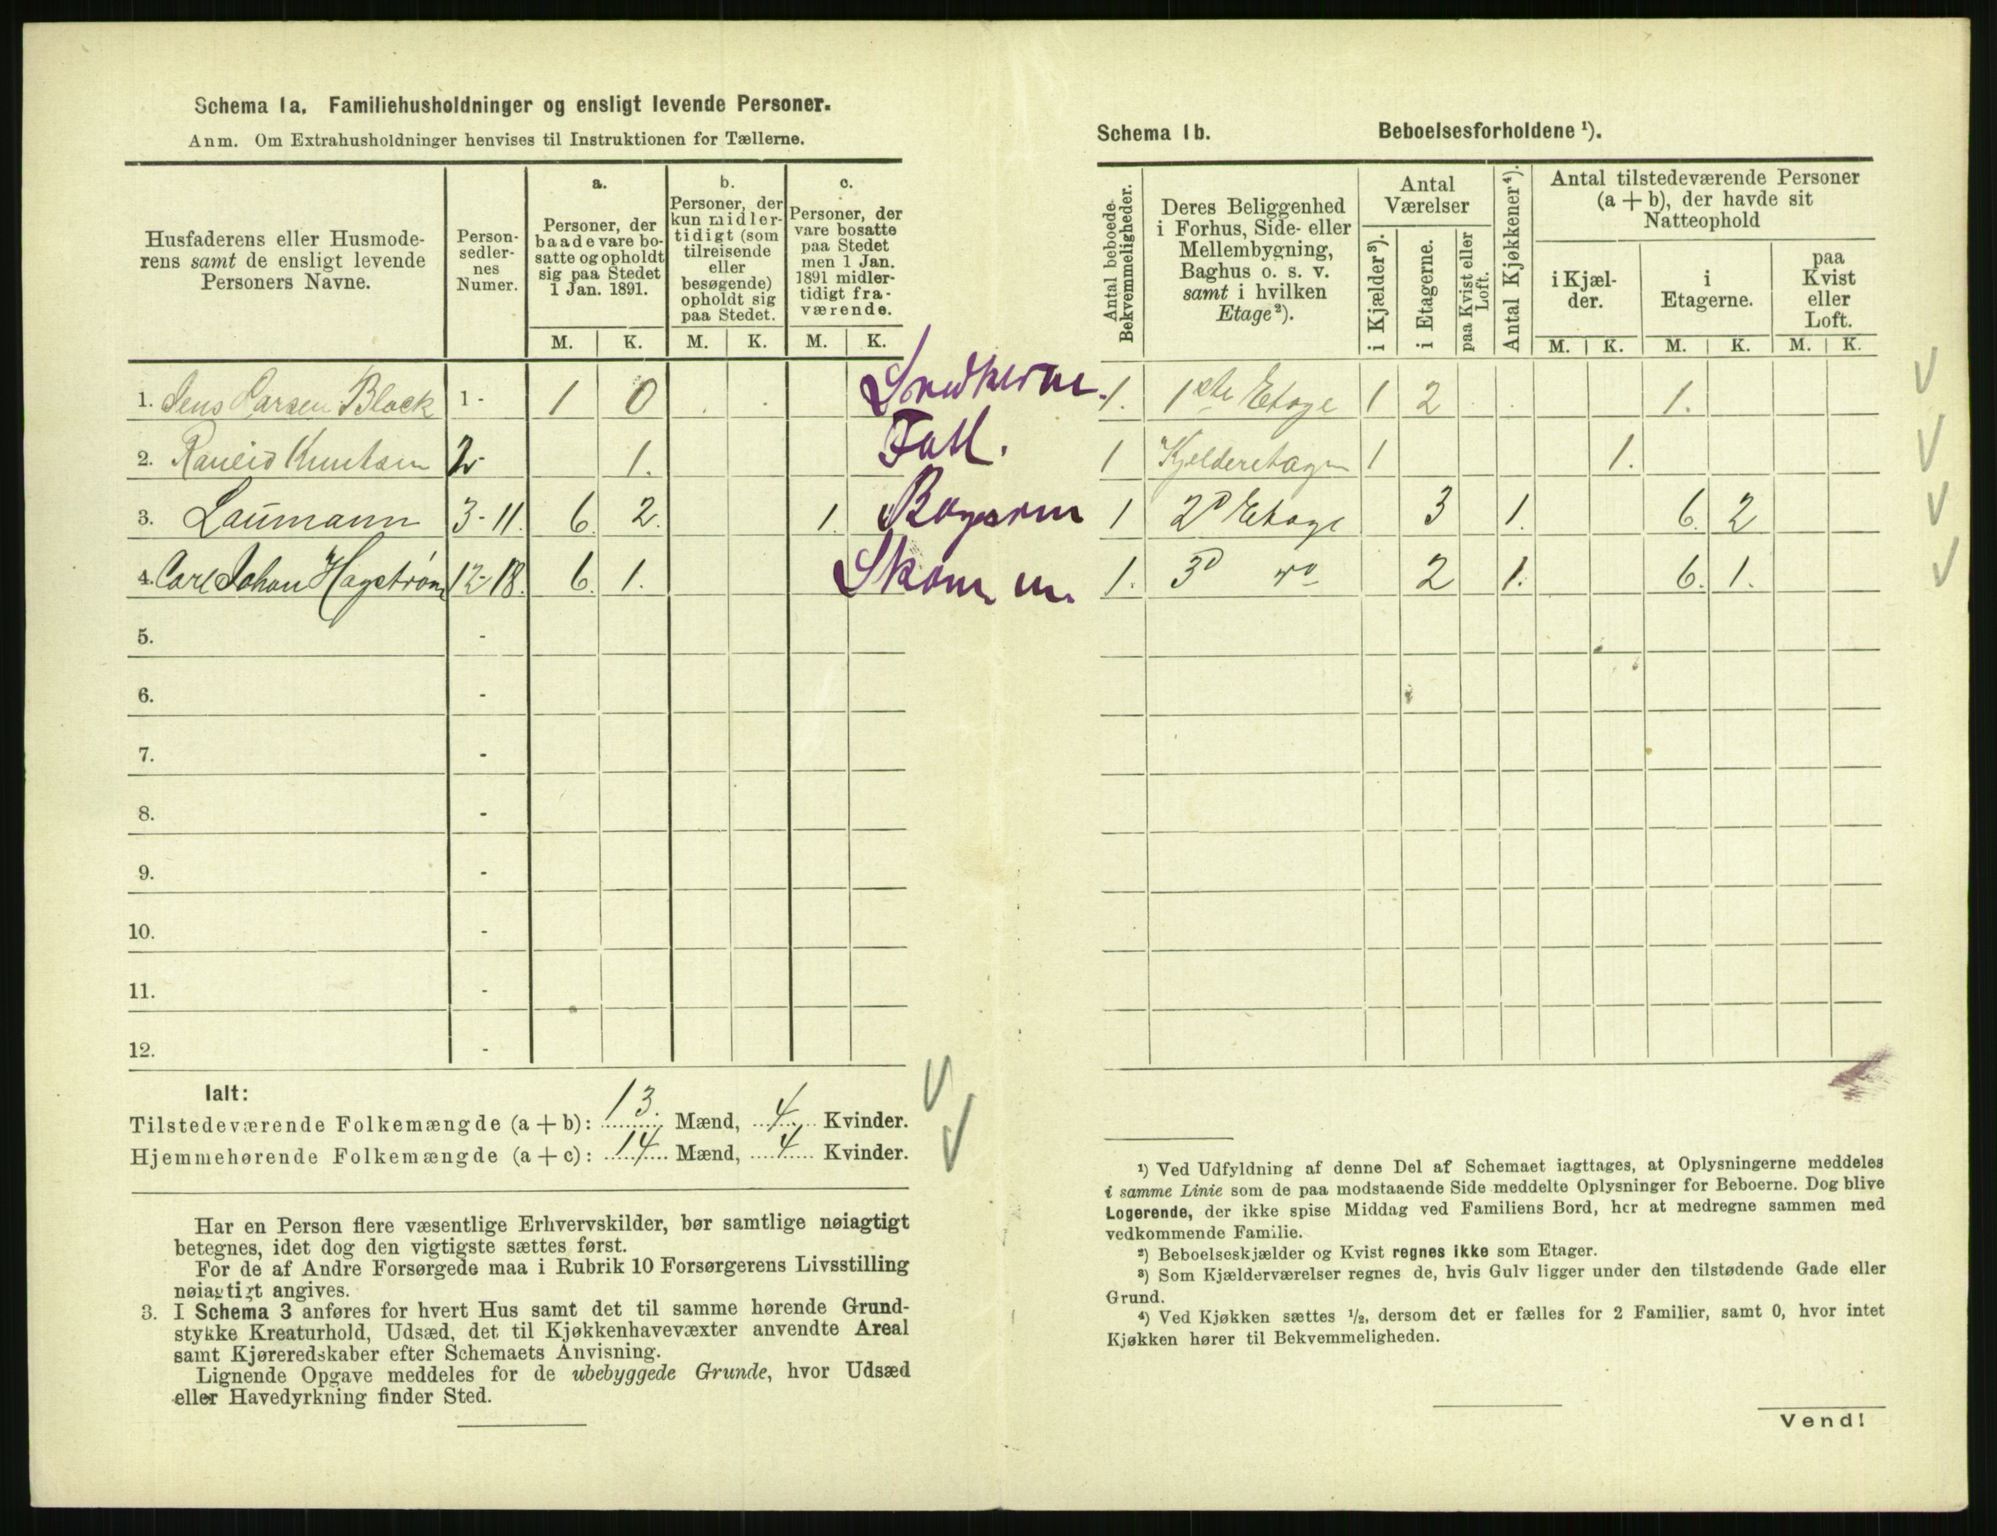 Schema 1a. Familiehusholdninger og ensligt levende Personer.
Anm. Om Extrahusholdninger henvises til Instruktionen for Tællerne.
Husfaderens eller Husmode-
rens samt de ensligt levende
Personers Navne.
Person-
sedler-
nes
Numer.
a.
Personer, der
baade vare bo-
satte og opholdt
sig paa Stedet
1 Jan. 1891.
b.
Personer, der
kun midler-
tidigt (som
tilreisende
eller
besøgende)
opholdt sig
paa Stedet.
c.
Personer, der
vare bosatte
paa Stedet
men 1 Jan.
1891 midler-
tidigt fra-
værende.
M. K. M. K. M. K.
1. Jens Larsen Block 1 - 1 0
2. Knutsen 2 - 1.
3. Laumann 3-11. 6. 2. 1.
4. Carl Johan Hagstrøm 12-18. 6. 1.
5. -
6. -
7. -
8. -
9. -
10. -
11. -
12. -
Ialt:
Tilstedeværende Folkemængde (a + b): 13. Mænd, 4 Kvinder.
Hjemmehørende Folkemængde (a + c): 14 Mænd, 4 Kvinder.
Har en Person flere væsentlige Erhvervskilder, bør samtlige nøiagtigt
betegnes, idet dog den vigtigste sættes først.
For de af Andre Forsørgede maa i Rubrik 10 Forsørgerens Livsstilling
nøiagtigt angives.
3. I Schema 3 anføres for hvert Hus samt det til samme hørende Grund-
stykke Kreaturhold, Udsæd, det til Kjøkkenhavevæxter anvendte Areal
samt Kjøreredskaber efter Schemaets Anvisning.
Lignende Opgave meddeles for de ubebyggede Grunde, hvor Udsæd
eller Havedyrkning finder Sted.
Snedkerne.
Fatt.
Bageren
Skom
Schema 1b. Beboelsesforholdene ¹).
Antal beboede
Bekvemmeligheder.
Deres Beliggenhed
i Forhus, Side- eller
Mellembygning,
Baghus o. s. v.
samt i hvilken
Etage²).
Antal
Værelser
i Kjælder³).
i Etagerne.
paa Kvist eller
Loft.
Antal Kjøkkener⁴).
Antal tilstedeværende Personer
(a + b), der havde sit
Natteophold
i Kjæl-
der.
i
Etagerne.
paa
Kvist
eller
Loft.
M. K. M. K. M. K.
1. 1ste Etage 1 2 1.
1 Kjelderetagen 1 1.
1 2d Etage 3 1. 6. 2
1. 3d do 2 1. 6. 1.
¹) Ved Udfyldning af denne Del af Schemaet iagttages, at Oplysningerne meddeles
i samme Linie som de paa modstaaende Side meddelte Oplysninger for Beboerne. Dog blive
Logerende, der ikke spise Middag ved Familiens Bord, her at medregne sammen med
vedkommende Familie.
²) Beboelseskjælder og Kvist regnes ikke som Etager.
³) Som Kjælderværelser regnes de, hvis Gulv ligger under den tilstødende Gade eller
Grund.
⁴) Ved Kjøkken sættes ½, dersom det er fælles for 2 Familier, samt 0, hvor intet
Kjøkken hører til Bekvemmeligheden.
Vend!